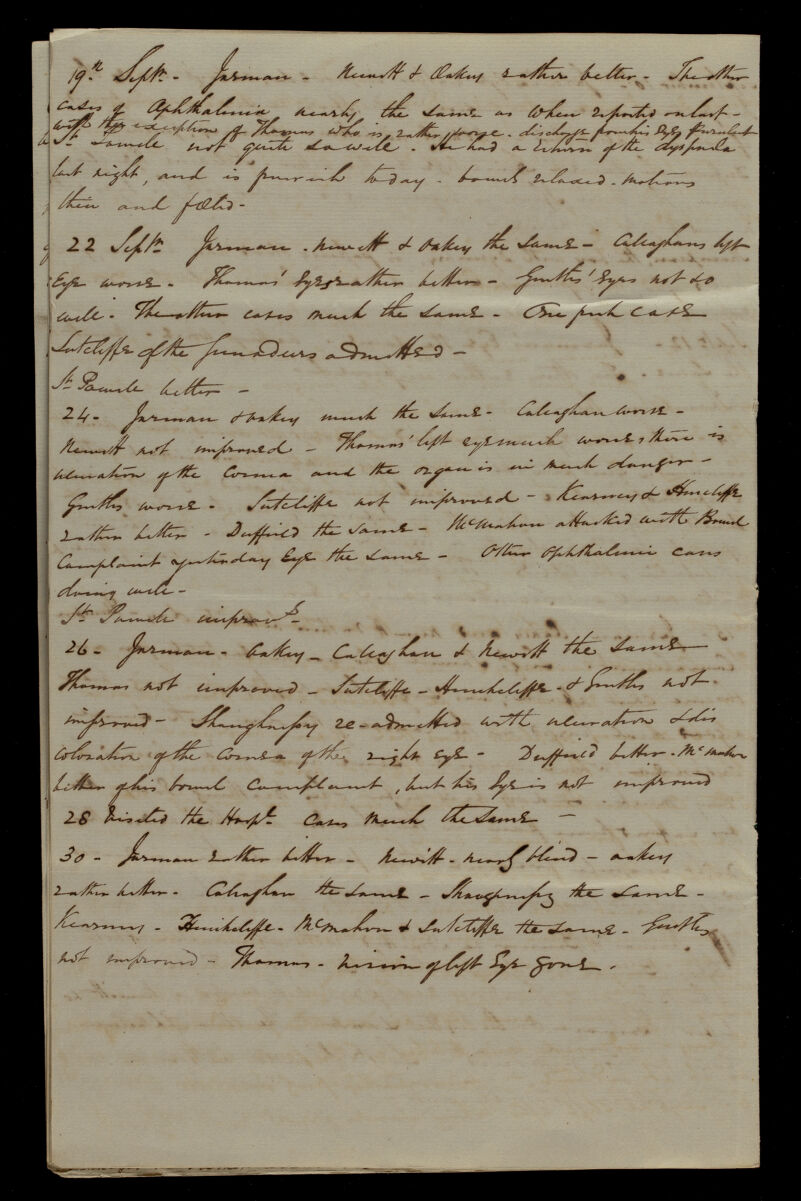 19th Septr. - Jarman - Newitt & Oakey rather better - The other
cases of Ophthalmia nearly the same as when reported on last -
with the exception of Thomas who is rather worse. discharge from his Eyes Purulent
St. Pawele not quite so well. He had a return of the dyspnœa
last night, and is feverish today - bowels relaxed - motions
thin and fœtid -
22 Septr. Jarman - Newitt & Oakey the same - Caleaghans left
Eye worse - Thomas' Eyes rather better - Gmths' Eyes not so
well - The other cases much the same - One fresh case
Sutcliffe of the Grenadiers admitted -
St. Pawele better -
24 - Jarman & Oakey much the same - Caleaghan worse -
Newitt not improved - Thomas' left eye much worse there is
ulceration of the Cornea and the organ is in much danger -
Gmths worse - Sutcliffe not improved - Kearney & Hincliffe
rather better - Duffield the same - McMahon attacked with Bowel
Complaint yesterday Eye the same - Other Ophthalmic cases
doing well -
St. Pawele improvg. -
26 - Jarman - Oakey - Caleaghan & Newitt the same
Thomas not improved - Sutcliffe - Hinchcliffe - & Gmths not
improved - Shaughnessy re-admitted with ulceration & dis
coloration of the Cornea of the right Eye - Duffield better - McMahon
better of his bowel complaint, but his Eye is not improved
28 Visited the Hospl. Cases much the same -
30 - Jarman rather better - Newitt - nearly blind - Oakey
rather better - Caleaghan the same - Shaughnessy the same -
Kearney - Hinchcliffe - McMahon & Sutcliffe the same - Gmths
not improved - Thomas - vision of left Eye gone.